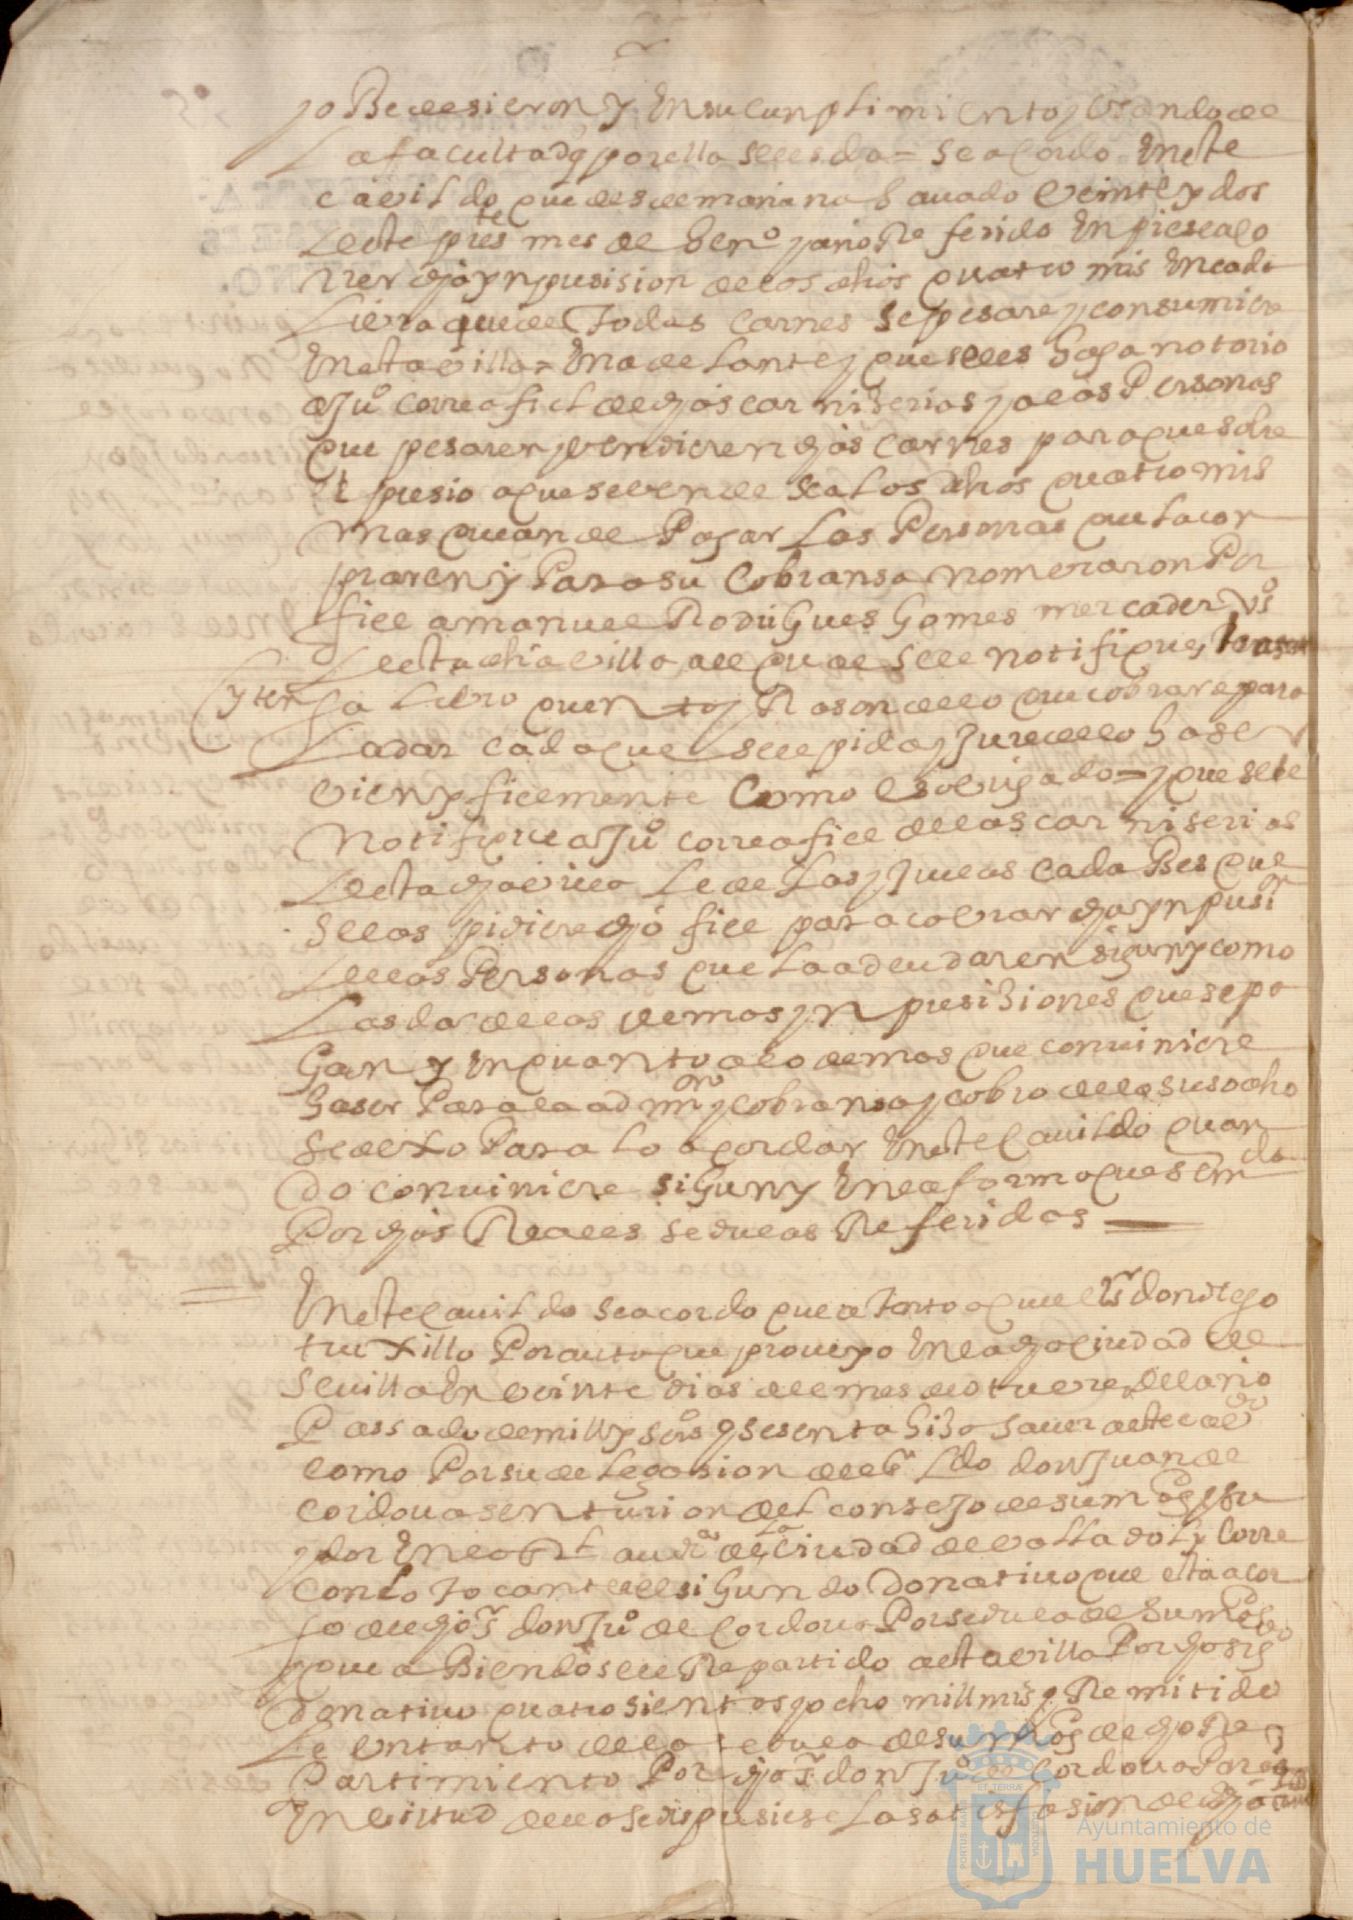 yoBedesieron y En su cunplimiento y Vsando de
La facultad q por ella se les da = se acordo En este
cavildo que desde mañana savado Veinte y dos
deste preste mes de Heno y año Referido Enpiese a co
rrer dha ynpusision de los dhos quatro mrs En cada
Livra que de todas carnes se pesare y consumiere
En esta villa = En adelante y que se les haga notorio
a Juo correa fiel de dhas carniserias y a las Personas
que pesaren y vendieren dhas carnes para que sobre
El presio a que se vende sea los dhos quatro mrs
mas que an de Pagar Las Personas que la con
praren y Para su Cobransa nomeraron Por
fiel a manuel Rodrigues Gomes mercader Vo
desta dha villa al qual se le notifique, tenga
Libro quenta y Rason de lo que cobrare para
La dar cada que se le pida y Jure de lo haser
vien y fielmente Como es obligado = y que se le
Notifique a Juo correa fiel de las carniserias
desta dha villa le de Las Ju cada Bes que
se las pidiere dho fiel para cobrar dha ynpusion
de las Personas que la adeudaren sigun y como
Las da de las demas ynpusisiones que se pa
Gan y En quanto a lo demas que conviniere
haser Para la admon y cobransa y cobro de lo susodho
se dexo Para lo acordar En este Cavildo quan
do conviniere sigun y En la forma que se manda
Por dhas Reales sedulas Referidas
En este Cavildo se acordo que en tanto a que el sr don diego
truxillo Por auto que proveyo En la dha Ciudad de
Sevilla En veinte dias del mes de otuvre del año
Passado de mill y seisos y sesenta hiso saver a este cavdo
como Por su delegasion del sr Ldo don Juan de
cordova senturion del consejo de su magd
ydor En la Rl audia de la Ciudad de Valladolid Corre
Con lo tocante al sigundo Donativo que esta a car
go de dho sr don Juo de Cordova Por sedula de su magd
y que aBiendosele Repartido a esta villa Por dho sigdo
Donativo quatrosientos y ocho mill mrs y Remitido
le Un tanto de la sedula de su magd de dho Re
Partimiento Por dho sr don Juo de Cordova Para que
En virtud de ella se dispusiese La satisfasion de dha
Ayuntamiento de
HUELVA